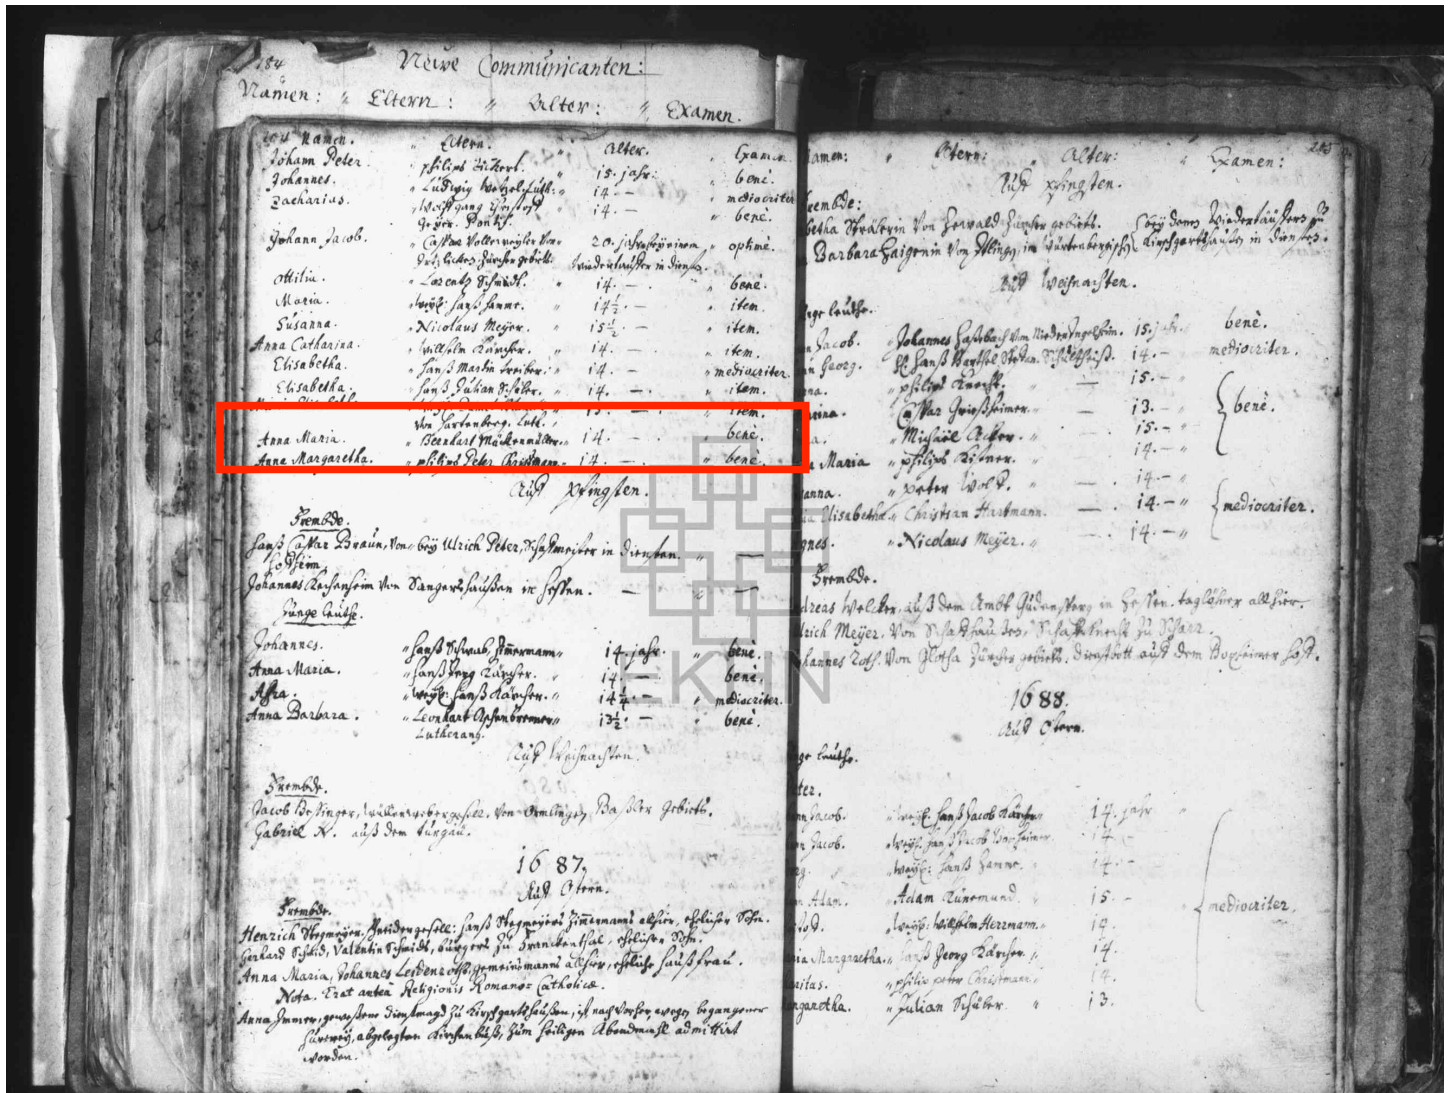 184
Neüe Communicanten:
Namen: " Eltern: " Alter: " Examen.
184 Namen. " Eltern. " Alter. " Examen
Johann Peter. " Philips " 15. jahr. " benè.
Johannes. " Ludwig Wetzel Luth: " 14 — " mediocriter
Zacharias. " Wolffgang 14 — " benè.
Geyer. Pontif.
Johann Jacob. " Caspar Vollenweyler von 20. jahr bey einem " optimè.
Zürcher gebiets. Wiedertäuffer in diensten.
Ottilia. " Lorentz Schmidt. " 14. — . " benè.
Maria. " weyl: Hanß Hamme. " 14½. — " item.
Susanna. " Nicolaus Meyer. " 15½. — . " item.
Anna Catharina. " Willhelm Kärcher. " 14. — " item.
Elisabetha. " Hanß Martin Treiber. " 14. — " mediocriter.
Elisabetha. " Hanß Julian Schüber. " 14. — . " item.
15. — . " item.
von Hartenberg. Luth. "
Anna Maria. " Bernhart Mückenmüller. " 14 — . " benè.
Anna Margaretha. " Philips Peter Christmann. " 14. — . " benè.
Auff Pfingsten.
Frembde.
Hanß Caspar Braun, von bey Ulrich Peter, in diensten. " —
Johannes von Sangershaußen in Hessen. — " —
Junge leuthe.
Johannes. " Hanß Schwab, Zimmermann " 14. jahr. " benè.
Anna Maria. " Hanß Jerg Kärcher. " 14. — " benè.
Afra. " weyl: Hanß Kärcher. " 14¼. — " mediocriter.
Anna Barbara. " Leonhart Aschenbrenner " 13½. — " benè.
Lutheran9.
Auff Weihnachten.
Frembde.
Jacob Bossinger, wüllenwebergesell. von Ormlingen, Baßler Gebiets.
Gabriel N. auß dem Turgau.
1687.
Auff Ostern.
Frembde.
Henrich Stegmeyer, Hanß Stegmeyers Zimmermanns allhier, ehelicher Sohn.
Gerhard Schmid, Valentin Schmids, burgers zu Franckenthal, ehelicher Sohn.
Anna Maria, Johannes Leidenroths, gemeinsmanns allhier, eheliche haußfrau.
Nota. Erat antea Religionis Romano-Catholicæ.
Anna Immer, geweßene dienstmagd zu Kirschgartshaußen, ist nach vorher, wegen begangener
hurerey, abgelegter Kirchenbuß, zum heiligen Abendmahl admittirt
worden.
amen: " Eltern: " Alter: " Examen: 185
Auff Pfingsten.
rembde:
betha Strälerin von Herwald Zürcher gebiets. bey denen Wiedertäuffern zu
Barbara Haigenin von im Würtenbergisch. Kirschgartshaußen in diensten.
Auff Weihnachten.
nge leuthe.
n Jacob. " Johannes Haßbach von Nieder Ingelheim. 15. jahr. benè.
n Georg. " Hanß Barthel Schultheiß. 14. — mediocriter.
nna. " Philips Knecht. — 15. — "
arina. " Caspar Grießheimer. — 13. — " benè.
a. " Michaël Acker. — 15. — "
a Maria " Philips Kißner. — . 14. — "
anna. " Peter Wolf. — . 14. — "
ia Elisabetha. " Christian Hartmann. — . 14. — " mediocriter.
gnes. " Nicolaus Meyer. — . 14. — "
Frembde.
dreas Welcker, auß dem Ambt Gudensperg in Hessen. taglöhner allhier.
lrich Meyer, von Schaffhaußen, Schaffknecht zu Scharr.
hannes Roth. von Glotha Zürcher gebiets, dienstbott auff dem Bopheimer Hoff.
1688.
Auff Ostern.
nge leuthe.
ter.
nn Jacob. " weyl: Hanß Jacob Kärcher 14. jahr "
nn Jacob. " weyl: Hanß Jacob 14. —
rg. " weyl: Hanß Hamme. " 14. —
n Adam. " Adam Künemund. " 15. —
" weyl: Willhelm Herrmann. " 14. mediocriter.
ria Margaretha. " Hanß Georg Kärcher. " 14.
aritas. " Philips Peter Christmann. 14.
rgaretha. " Julian Schüber. " 13.
EKHN